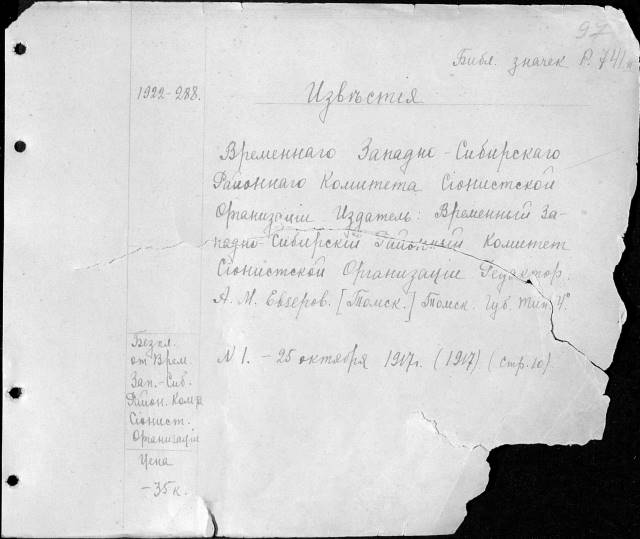 97
Библ. значек Р. 741
1922-288.
Извѣстія
Временнаго Западно-Сибирскаго
Районнаго Комитета Сіонистской
Организаціи Издатель: Временный За-
падно-Сибирскій Районный Комитет
Сіонистской Организаціи Редактор.
А. М. Евзеров. [Томск.] Томск. Губ. тип 4°
N 1. - 25 октября 1917г. (1917) (стр. 10)
Безпл.
от Врем.
Зап.-Сиб.
Район. Ком.
Сіонист.
Организаціи
Цена
-35 к.